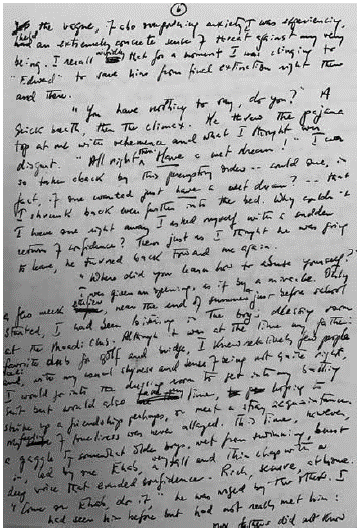 6
the vague, I also overpowering anxiety I was experiencing,
had an extremely concrete sense of threat against my very
being. I recall that for a moment I was clinging to
"Edward" to save him from final extinction right there
and then.
"You have nothing to say, do you?" A
quick breath, then the climax. He threw the pajama
top at me with vehemence and what I thought was
disgust. "All right then, Have a wet dream!" I was
so taken aback by this peremptory order -- could one, in
fact, if one wanted just have a wet dream? -- that
I shrunk back even further into the bed. Why couldn't
I have one right away I asked myself with a sudden
return of confidence? Then just as I thought he was going
to leave, he turned back toward me again.
"Where did you learn how to abuse yourself?"
I was given an opening, as if by a miracle. Only
a few weeks, near the end of summer just before school
started, I had been sitting in the boys' dressing room
at the Club. Although it was at the time my father's
favorite club for golf and bridge, I knew relatively few people
and, with my usual shyness and sense of being not quite right,
I would go into the dressing room to get into my bathing
suit but would also time, hoping to
strike up a friendship perhaps, or meet a stray acquaintance.
of was never alleged. This time, however,
a gaggle of somewhat older boys, wet from swimming, burst
in, led by one, a tall and thin chap with a
deep voice that exuded confidence. Rich, secure, at home.
"Come on, do it," he was urged by the others. I
had seen him before but had not really met him:
did not know